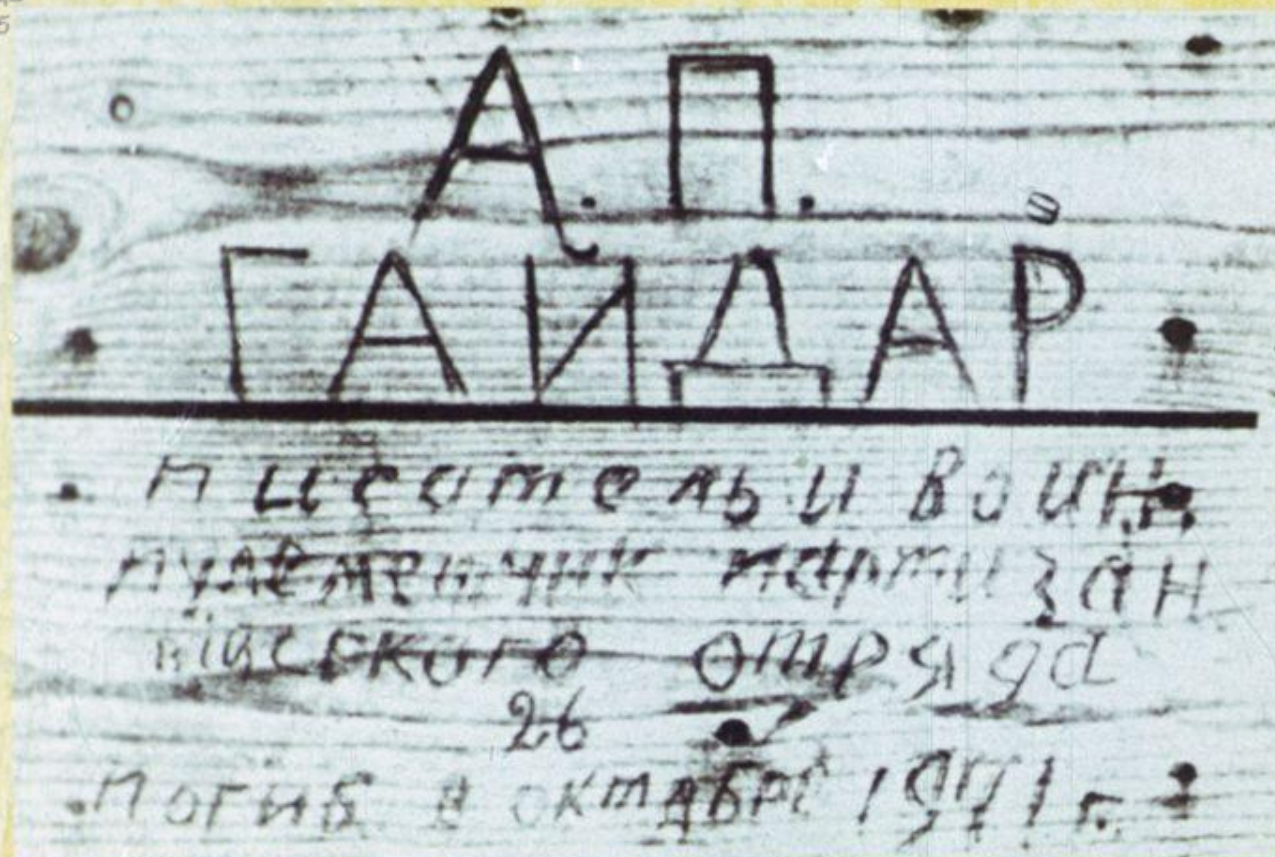 А. П.
ГАЙДАР
писатель и воин,
пулеметчик партизан
нского отряда
26
погиб в октябре 1941 г.